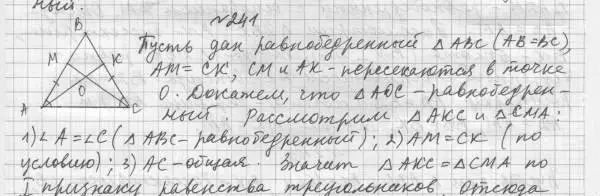 ный.
№241
B
M
K
O
A
C
Пусть дан равнобедренный △ABC (AB=BC),
AM=CK, CM и AK - пересекаются в точке
O. Докажем, что △AOC - равнобедрен-
ный. Рассмотрим △AKC и △CMA:
1) ∠A=∠C (△ABC - равнобедренный); 2) AM=CK (по
условию); 3) AC - общая. Значит △AKC=△CMA по
I признаку равенства треугольников, отсюда